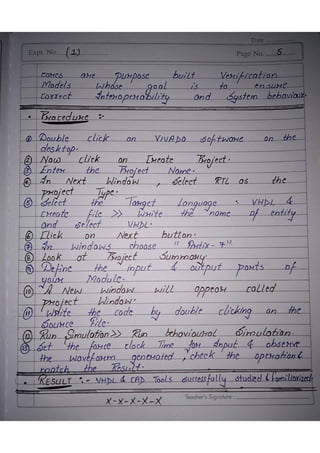 Date
Expt. No. (1)
Page No. 5
cores are purpose built Verification
Models whose goal is to ensure
correct Interoperability and System behaviour
• Procedure :-
① Double click on VIVADO software on the
desktop.
② Now click on Create Project.
③ Enter the Project Name.
④ In Next Window, Select RTL as the
project Type.
⑤ Select the Target Language : VHDL &
create file >> Write the name of entity
and select VHDL.
⑥ Click on Next button.
⑦ In windows choose "Artix-7".
⑧ Look at Project Summary
⑨ Define the input & output ports of
your Module.
⑩ A New window will appear called
project Window.
⑪ Write the code by double clicking on the
Source File.
⑫ Run Simulation >> Run behavioural Simulation.
⑬ Set the force clock Time for Input & observe
the waveform generated, check the operation &
match the Result.
• RESULT :- VHDL & CAD Tools successfully studied & familiarized
Teacher's Signature
X-X-X-X-X